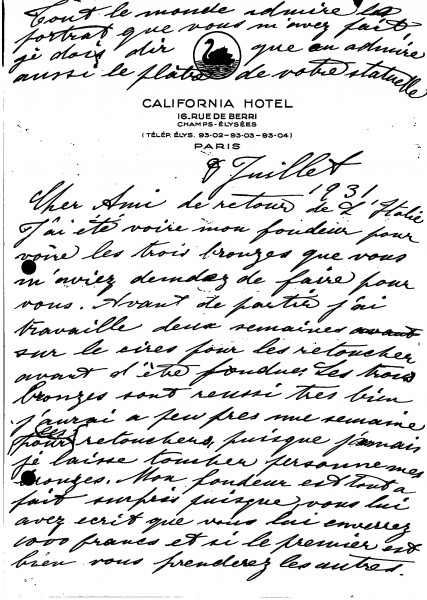 Tout le monde admire le
portrat que vous m'avez fait,
je dois dir que on admire
aussi le plâtre de votre statuette
CALIFORNIA HOTEL
16. RUE DE BERRI
CHAMPS-ÉLYSÉES
(TÉLÉP. ÉLYS. 93-02-93-03-93-04)
PARIS
8 Juillet
1931
Cher Ami de retour de L'Italie
J'ai été voire mon fondeur pour
voire les trois bronzes que vous
m'aviez demdez de faire pour
vous. Avant de partir j'ai
travaille deux semaines avant
sur le cires pour les retoucher
avant d'être fondue. Les trois
bronzes sont reussi tres bien
j'aurai a peu pres une semaine
pour les retouchers, puisque jamais
je laisse toucher personne mes
bronzes. Mon fondeur est tout a
fait surpris puisque vous lui
avez ecrit que vous lui enverrez
1000 francs et si le premier est
bien vous prenderez les autres.